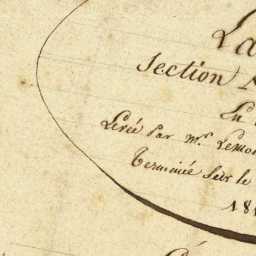 La
Section
En
Levée Par Mr. Lemo
Terminée sur le
181